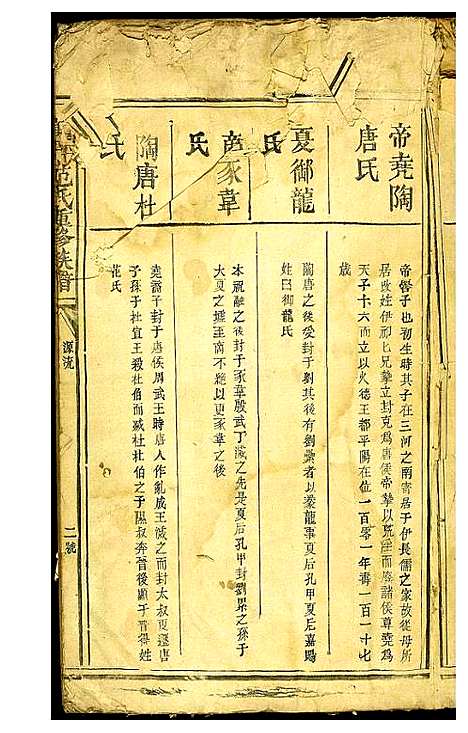 帝堯陶
唐氏
帝嚳子也初生時其子在三河之南寄居于伊長儒之家故從母所
居改姓伊祁匕兄摯立封克為唐侯帝摯以荒淫而廢諸侯尊堯為
天子十六而立以火德王都平陽在位一百零一年壽一百一十七
歲
夏御龍
氏
陶唐之後受封于劉其後有劉累者以豢龍事夏后孔甲夏后嘉賜
姓曰御龍氏
商豕韋
氏
本祝融之後封于豕韋殷武丁滅之先是夏后孔甲封劉累之孫于
大夏之墟至商不絕以更豕韋之後
陶唐杜
氏
堯裔子封于唐侯周武王時唐人作亂成王滅之而封太叔更遷唐
子孫于杜宣王殺杜伯而滅杜杜伯之子隰叔奔晉後顯于晉得姓
范氏
范氏重修族譜
源流
二號